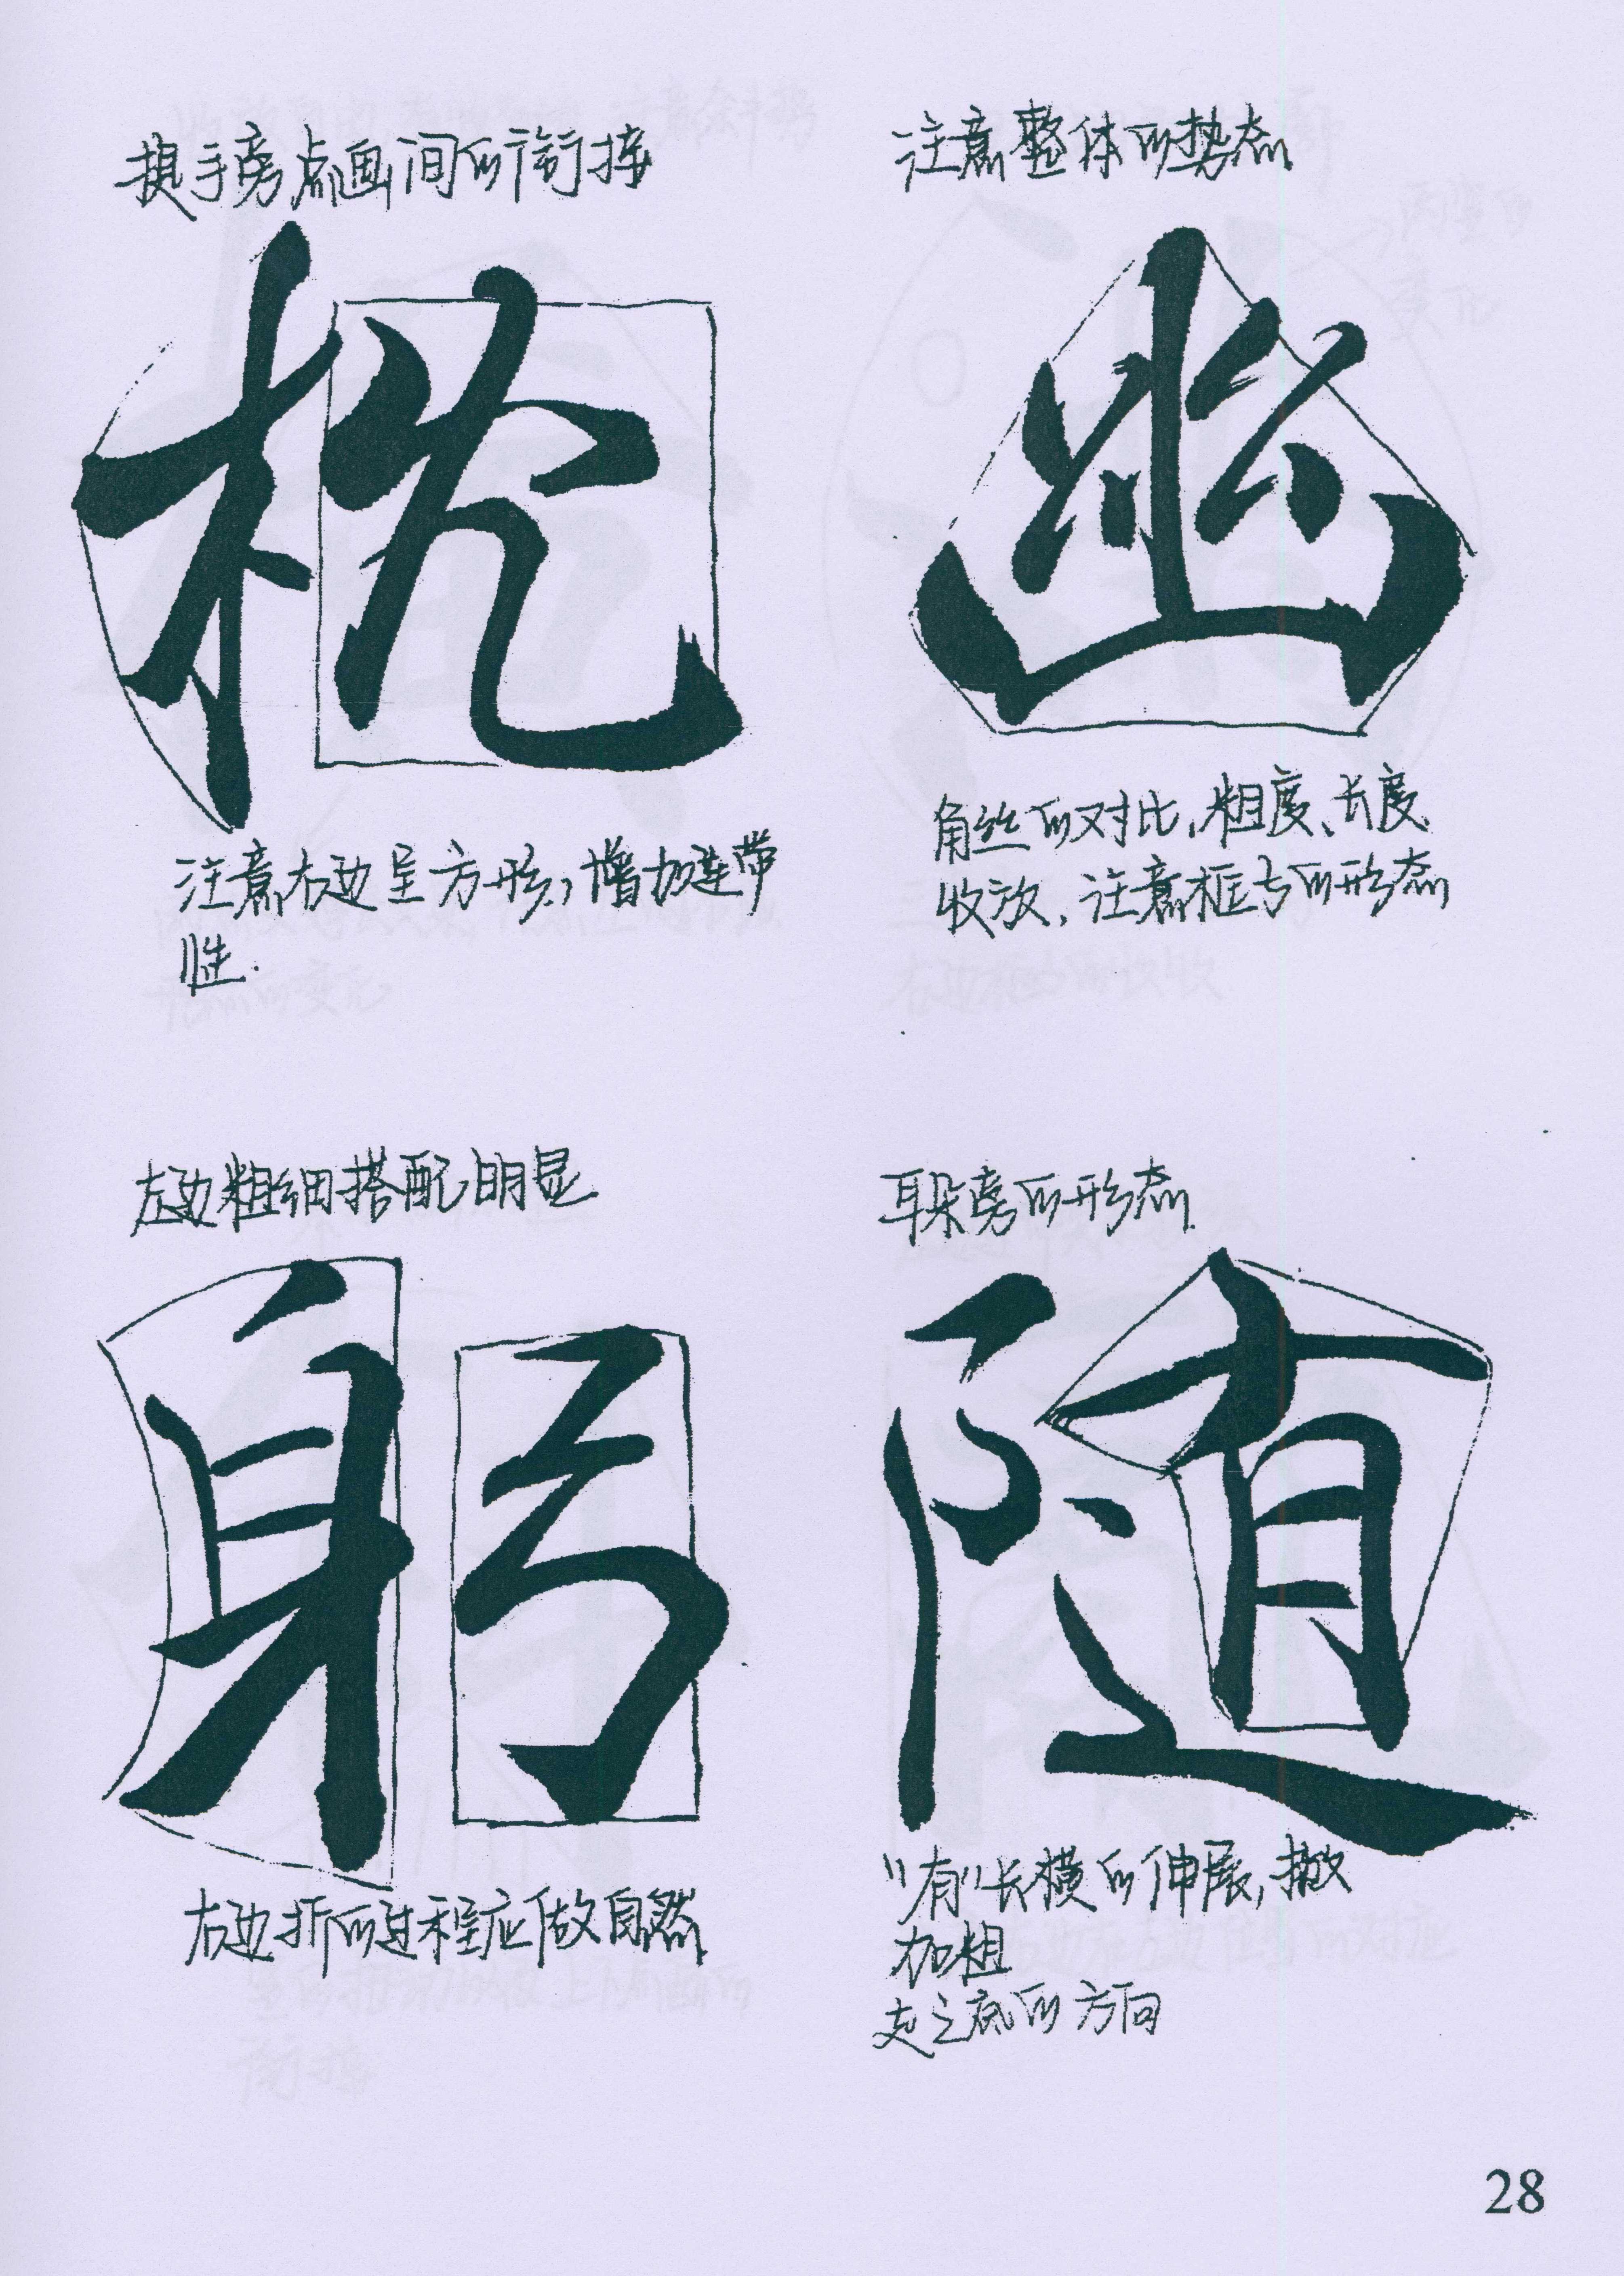 提手旁点画间的衔接
枕
注意右边呈方形,增加连带
性.
注意整体的势态
幽
角丝的对比,粗度、长度、
收放,注意框的形态
左边粗细搭配明显
躬
右边折的过程应做自然
耳朵旁的形态
随
"有"长横的伸展,撇
加粗
走之底的方向
28